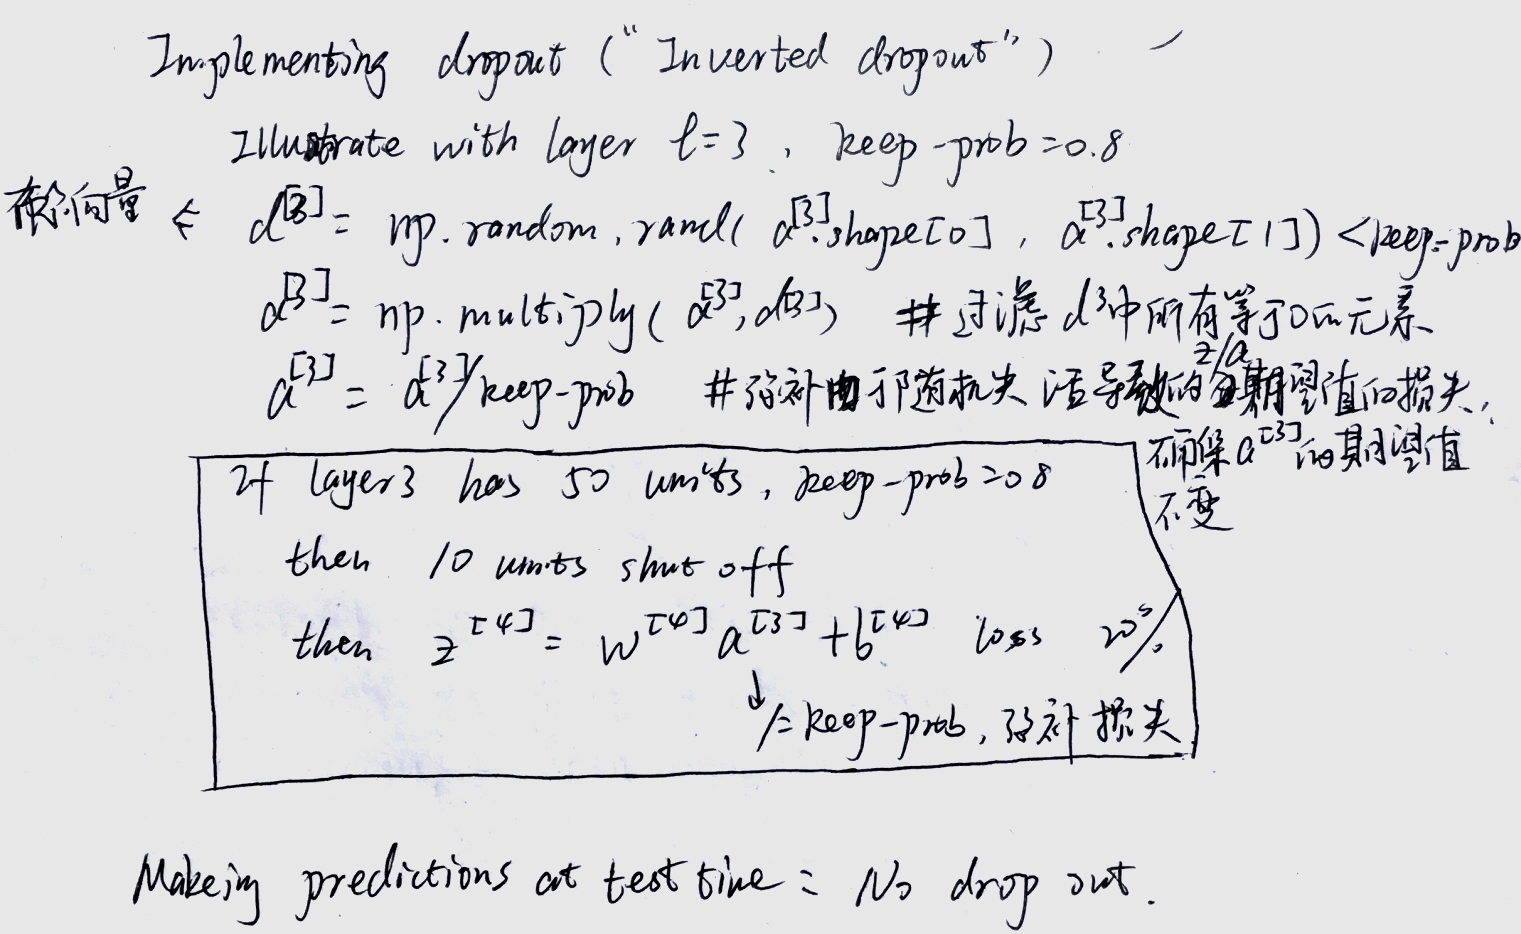 Implementing dropout ("Inverted dropout")
Illustrate with layer l=3, keep-prob=0.8
布尔向量 ⇐ d[3] = np.random.rand( a[3].shape[0], a[3].shape[1]) < keep-prob
a[3] = np.multiply( a[3], d[3]) # 过滤 d3中所有等于0的元素
a[3] = a[3]/keep-prob # 弥补由于随机失活导致的 z/a 期望值的损失,
确保a[3]的期望值
不变
If layer3 has 50 units, keep-prob=0.8
then 10 units shut off
then z[4] = w[4] a[3] + b[4] loss 20%
↓
/= keep-prob, 弥补 损失
Makeing predictions at test time: No drop out.